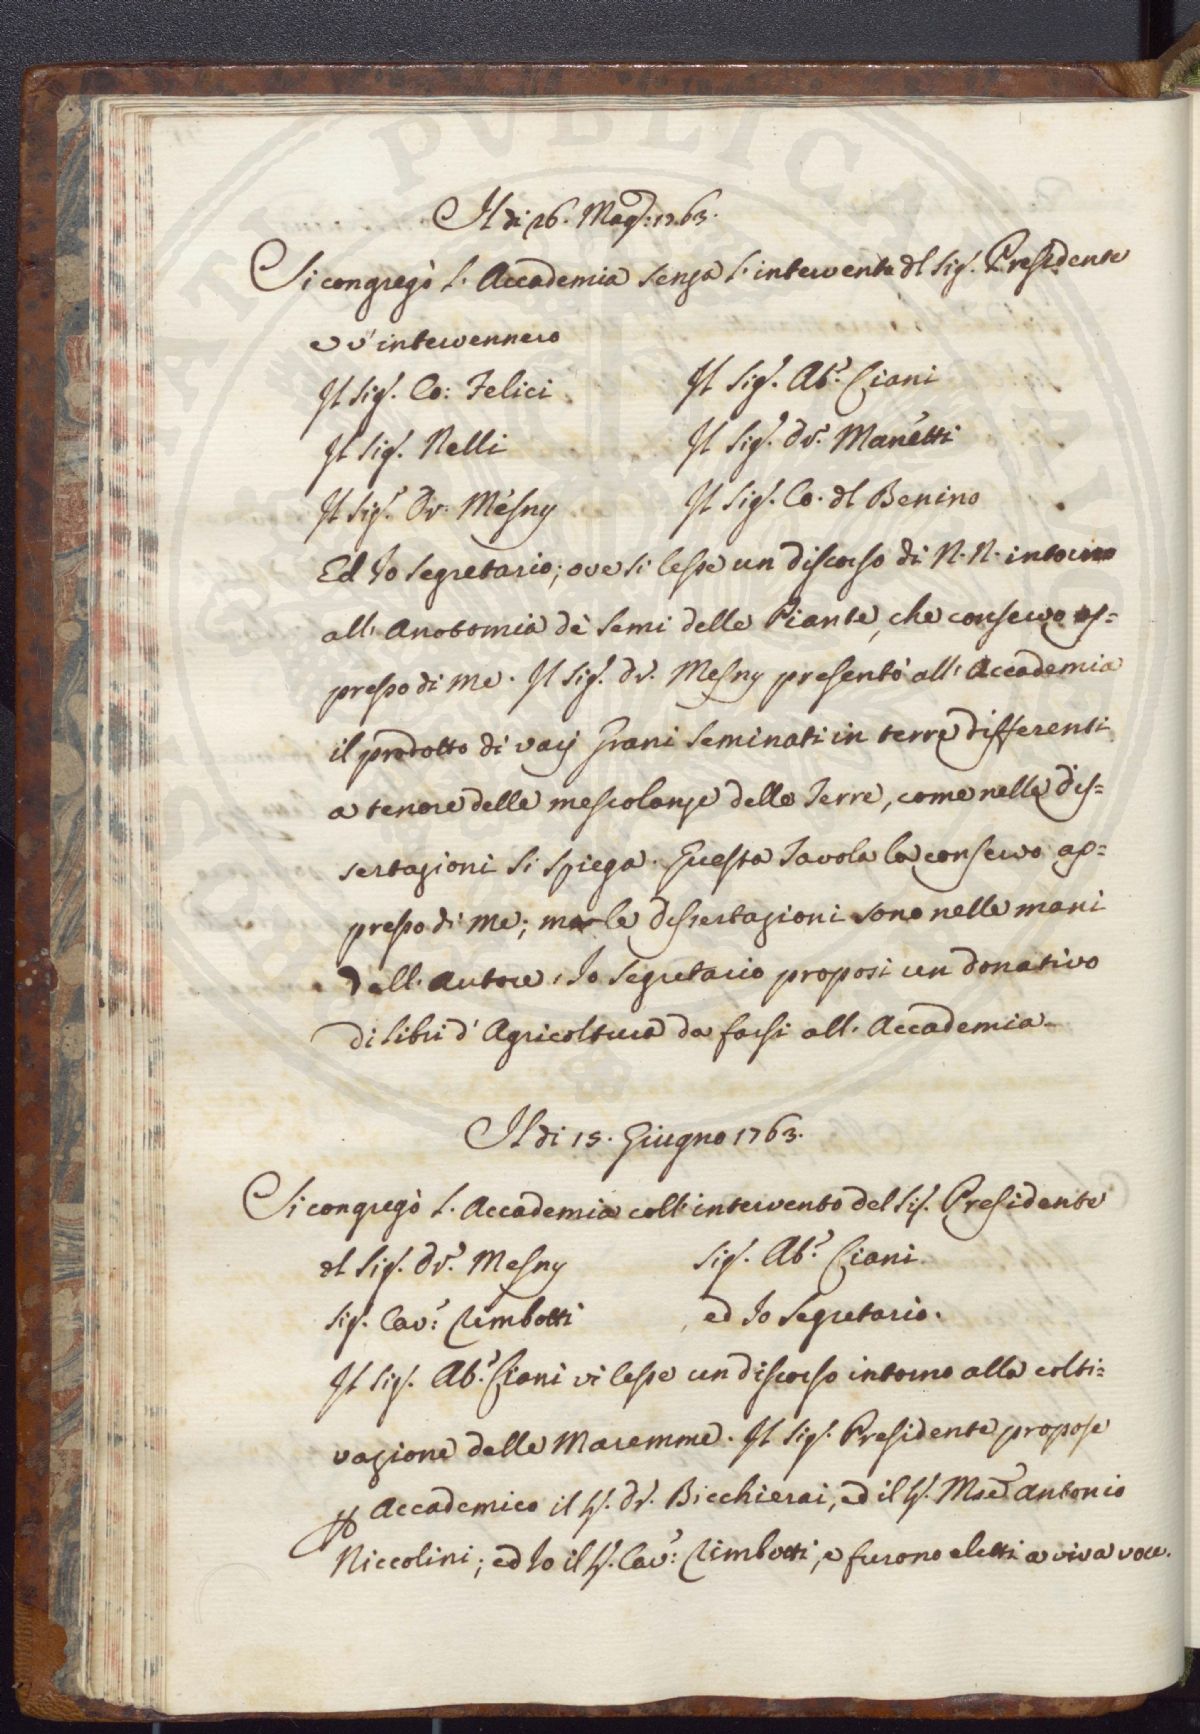 Il di 26. Mag: 1763.
Si congregò l'Accademia senza l'intervento dl Sig. Presidente
e v'intervennero
Il Sig. Co: Felici
Il Sig. Ab. Ciani
Il Sig. Nelli
Il Sig. Dr. Manetti
Il Sig. Dr. Mesny
Il Sig. Co. dl Benino
Ed Io Segretario; ove si lesse un discorso di N. N. intorno
all'Anotomia de' Semi delle Piante, che conservo ap=
presso di me. Il Sig. Dr. Mesny presentò all'Accademia
il prodotto di varj Grani seminati in terre differenti
a tenore delle mescolanze delle Terre, come nelle dis=
sertazioni si spiega. Questa Tavola la conservo ap=
presso di me; ma le dissertazioni sono nelle mani
dell'Autore. Io Segretario proposi un donativo
di libri d'Agricoltura da farsi all'Accademia.
Il di 15. Giugno 1763.
Si congregò l'Accademia coll'intervento del Sig. Presidente
dl Sig. Dr. Mesny
Sig. Ab. Ciani
Sig. Cav: Rimbotti
ed Io Segretario.
Il Sig. Ab. Ciani vi lesse un discorso intorno alla colti=
vazione delle Maremme. Il Sig. Presidente propose
p Accademico il S. Dr. Bicchierai, ed il S. Antonio
Niccolini; ed Io il S. Cav: Rimbotti, e furono eletti a viva voce.